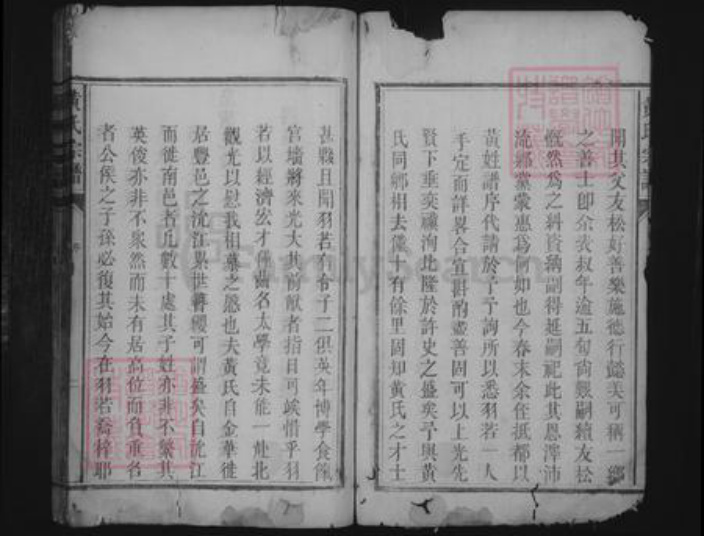 聞其父友松好善樂施德行懿美可稱一鄉
之善士卽余表叔年逾五旬尚艱嗣續友松
慨然爲之斜資納副得延嗣祀此其恩澤沛
流鄉黨蒙惠爲何如也今春末余在抵都以
黃姓譜序代請於予予詢所以悉羽若一人
手定而詳畧合宜斟酌盡善固可以上光先
賢下垂奕禩洵比隆於許史之盛矣予與黃
氏同鄉相去僅十有餘里固知黃氏之才士
甚夥且聞羽若有令子二俱英年博學食餼
宮墻將來光大其前猷者指日可竢惜乎羽
若以經濟宏才僅齒名太學竟未能一赴北
觀光以慰我相慕之懇也夫黃氏自金華徙
居豐邑之沇江累世簪纓可謂盛矣自沇江
而徙南邑者几數十處其子姓亦非不繁其
英俊亦非不衆然而未有居高位而負重名
者公侯之子孫必復其始今在羽若喬梓耶
黃氏宗譜
序
二
FamilySearch